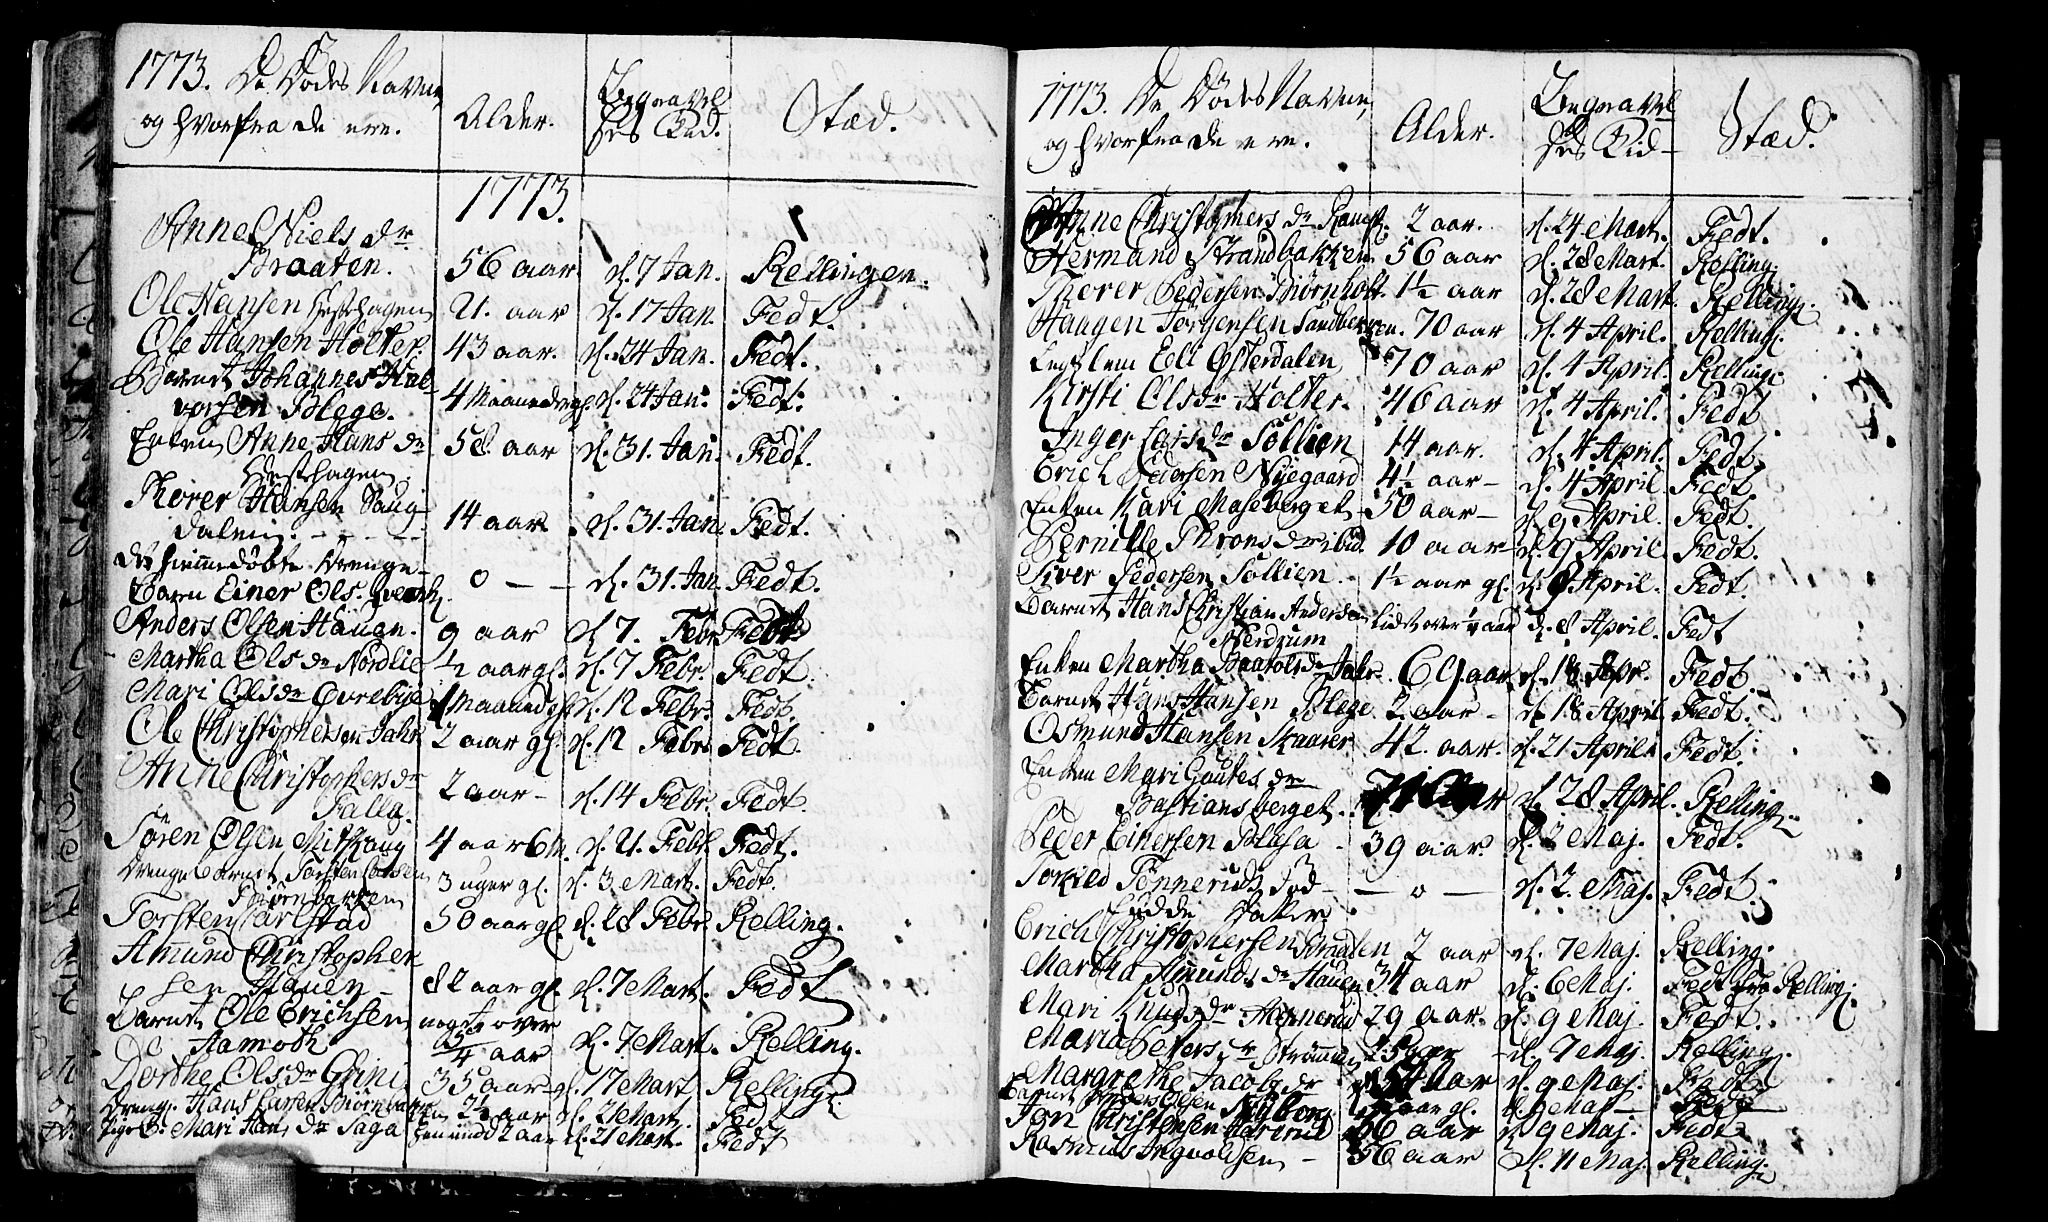 1773. De Dødes Navne,
og hvorfra de ere.
Alder.
Begravel
ses Tid.
Stæd.
1773.
Anne Niels dr
Braaten. 56 aar d. 7 Jan. Kellingen.
Ole Hansen Hesthagen 21. aar d. 17 Jan. Fedt.
Ole Hansen Holter. 43 aar. d. 24 Jan. Fedt.
Barnet Johannes Hal-
vorsen Blege. 4 Maaneder gl. d. 24 Jan. Fedt.
Enken Anne Hans dr 58 aar d. 31. Jan. Fedt.
Hesthagen
Thorer Hansen Saug-
dalen. 14 aar d. 31. Jan. Fedt.
det hiemmedøbte Drenge-
Barn Einer Ols. 0 d. 31. Jan Fedt.
Anders Olsen Haugn. 9 aar d. 7. Febr Fedt.
Martha Ols dr Nordlie ½ aar gl. d. 7 Febr. Fedt.
Mari Ols dr Øvrebye 1 Maaned gl. d. 12 Febr. Fedt.
Ole Christophersen Jahr 2 aar gl. d. 12 Febr Fedt.
Anne Christophers dr
Falla. 2 aar d. 14 Febr. Fedt.
Søren Olsen Mithaug 4 aar 6 M. d. 21. Febr. Fedt.
Drengebarnet Torsten Larsen 3 uger gl. d. 3 Mart. Fedt.
Biørnbakken
Torsten Carlstad 50 aar gl. d. 28 Febr. Kelling.
Amund Christopher
sen Hauen 82 aar gl. d. 7 Mart. Fedt
Barnet Ole Erichsen noget over
Aamoth 3/4 aar d. 7 Mart. Kelling.
Dorthe Ols dr Grini 35 aar gl. d. 17 Mart Kelling.
Dreng. Hans Larsen Biørnbakken 2½ aar d. 21 Mart. Fedt
Pige B. Mari Hans dr Saga henimod 2 aar d. 21 Mart. Fedt
1773. De Dødes Navne,
og hvorfra de ere.
Alder.
Begravel
ses Tid
Stæd.
Anne Christophers dr 2 aar. d. 24 Mart. Fedt.
Hermand Strandbakken 56 aar d. 28 Mart. Kelling.
Thorer Pedersen Biørnholt. 1½ aar d. 28 Mart. Kelling.
Haagen Jørgensen Sandbakken. 70 aar d. 4 April. Kelling.
Legslem Eli Østerdalen 70 aar d. 4 April. Kelling.
Kirsti Ols dr Holter. 46 aar d. 4 April. Fedt
Inger Lars dr Sollien 14 aar. d. 4 April. Fedt.
Erich Pedersen Nyegaard 4½ aar d. 4 April Fedt.
Enken Kari Maseberget 50 aar d. 9 April. Fedt.
Pernille Throns dr ibid. 10 aar d. 9 April. Fedt.
Siver Pedersen Sollien. 1½ aar gl. d. April. Fedt.
Barnet Hans Christian Andersen lidt over ¼ aar d. 8 April. Fedt
Nerdrum
Enken Martha Jahr. 69 aar d. 18 Fedt.
Barnet Hans Hansen Blege 2 aar d. 18 April Fedt.
Osmund Hansen Skaarer 42. aar. d. 21 April. Fedt.
Enken Mari Goutes dr
Bastiansberget. d. 28 April. Kelling.
Peder Einersen Blasa 39 aar. d. 2 Maj. Fedt.
Torkild Tønneruds Død-
fødde Datter. 0 d. 2. Maj. Fedt.
Erich Christophersen Braaten 2 aar d. 7 Maj. Kelling.
Martha Amunds dr Hauen 34 aar d. 6 Maj. Fedt fra Kelling.
Mari Knuds dr 29 aar. d. 9 Maj. Fedt.
Maria Severs dr Strømmen d. 7 Maj. Kelling.
Margrethe Jacobs dr 54 aar d. 9 Maj. Fedt
Barnet Anders Olsen Nyborg. aar gl. d. 9 Maj
Jon Christensen 56 aar d. 9 Maj. Fedt
Rasmus Ingvoldsen 56 aar d. 11 Maj. Kelling.